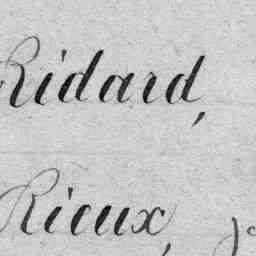 Ridard,
Rieux,